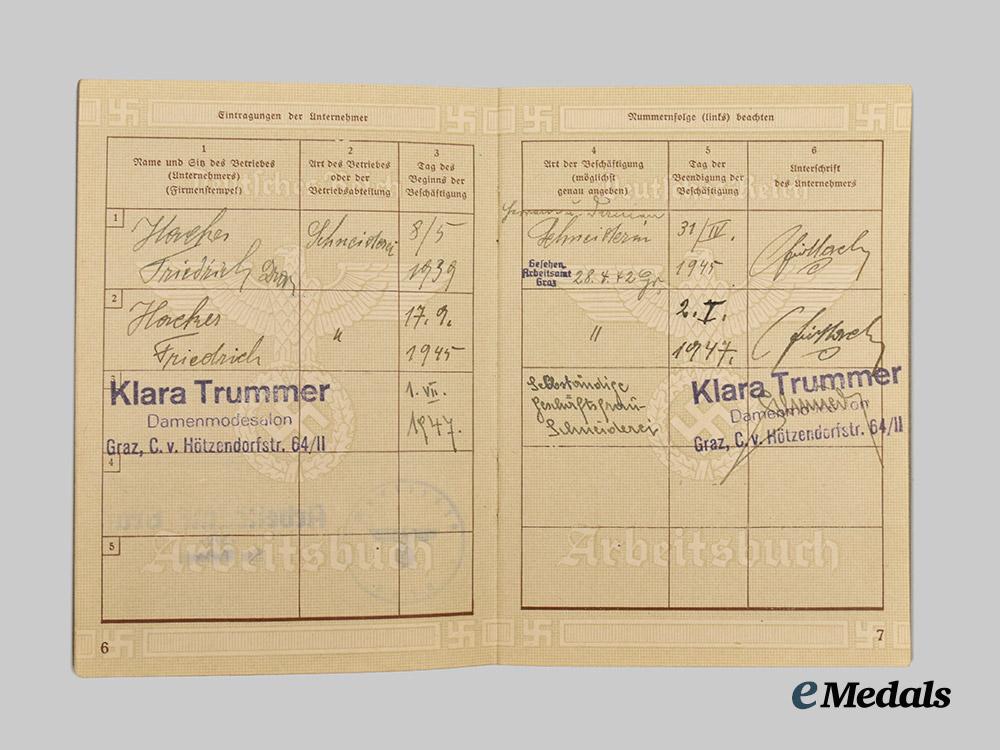 Eintragungen der Unternehmer
1
Name und Sitz des Betriebes
(Unternehmers)
(Firmenstempel)
2
Art des Betriebes
oder der
Betriebsabteilung
3
Tag des
Beginns der
Beschäftigung
1
Hacker
Friedrich Graz
Schneiderei
8/5
1939
2
Hacker
Friedrich
"
17. 9.
1945
3
Klara Trummer
Damenmodesalon
Graz, C. v. Hötzendorfstr. 64/II
1. VII.
1947.
4
5
Deutsches Reich
Arbeitsbuch
6
Nummernfolge (links) beachten
4
Art der Beschäftigung
(möglichst
genau angeben)
5
Tag der
Beendigung der
Beschäftigung
6
Unterschrift
des Unternehmers
Schneiderin
Gesehen
Arbeitsamt
Graz
28.4.42
31/IV.
1945
"
2. I.
1947.
Selbständige
Geschäftsfrau-
Schneiderei
Klara Trummer
Damenmodesalon
Graz, C. v. Hötzendorfstr. 64/II
Deutsches Reich
Arbeitsbuch
7
eMedals